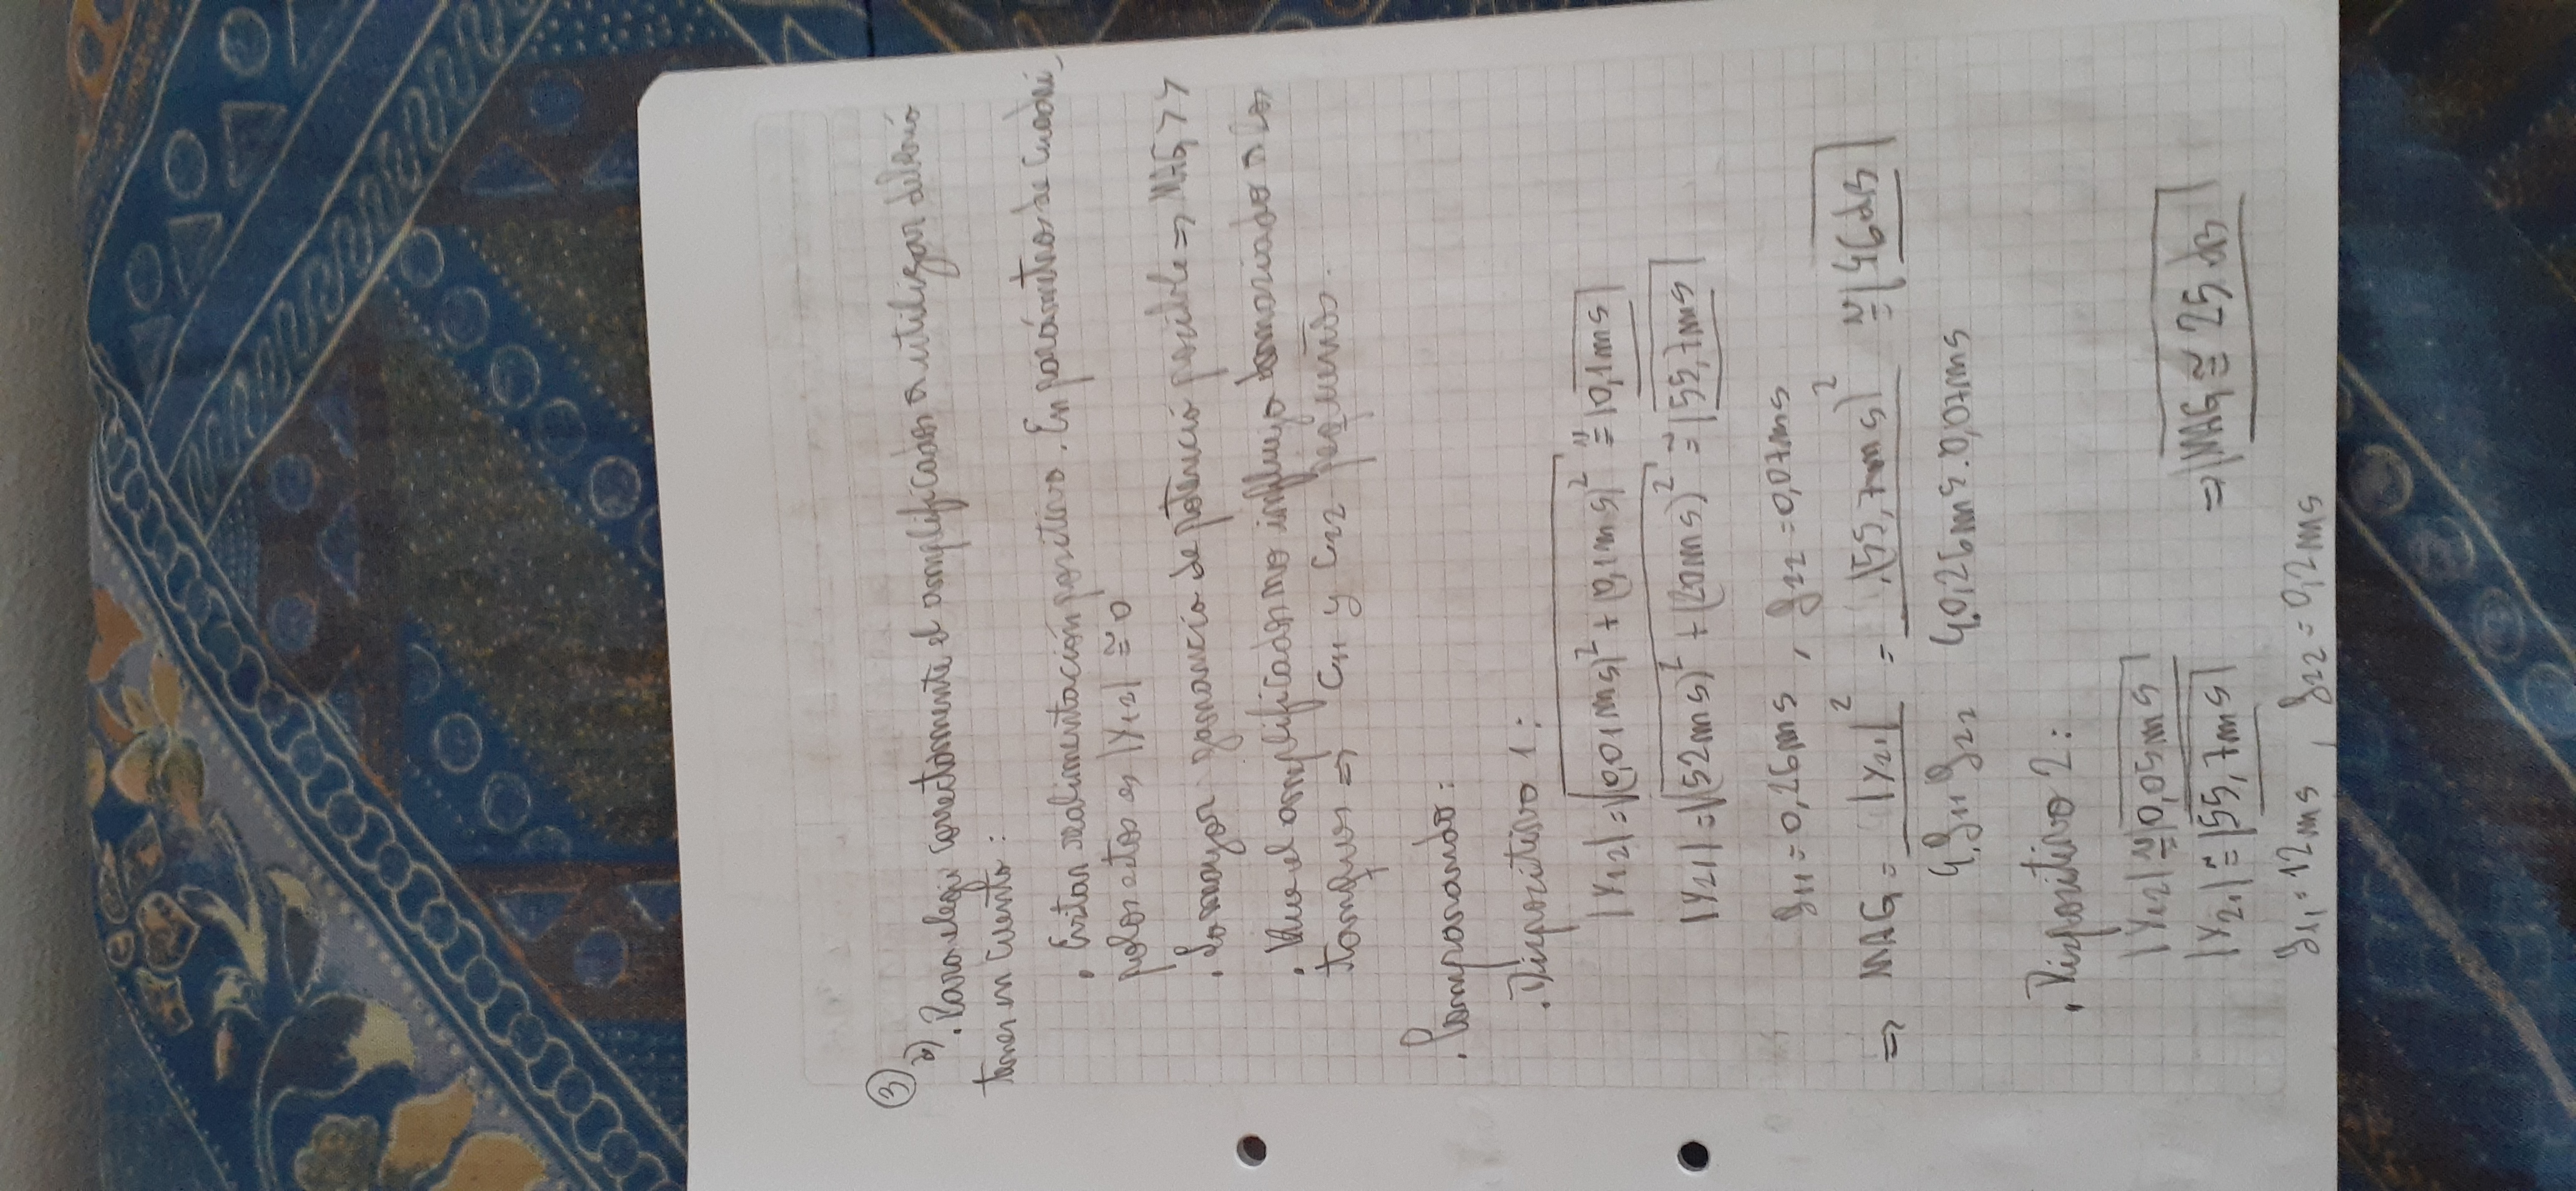 3
a) . Para elegir correctamente el amplificador a utilizar debería
tener en cuenta :
. Evitar realimentación positiva. En parámetros de cuadri-
polos estos es |Y12| ≅ 0
. La mayor ganancia de potencia posible ⇒ MAG >>
. Que el amplificador no influya demasiado a los
tanques ⇒ C11 y C22 pequeños.
. Comparando :
. Dispositivo 1 :
|Y12| = √(0,01ms)² + (0,1ms)² ≅ |0,1ms|
|Y21| = √(52ms)² + (20ms)² ≅ |55,7ms|
g11 = 0,26ms , g22 = 0,07ms
⇒ MAG = |Y21|² / 4.g11 g22 = (55,7ms)² / 4.0,26ms.0,07ms ≅ |46dB|
. Dispositivo 2 :
|Y12| ≅ |0,05ms|
|Y21| ≅ |55,7ms| ⇒ |MAG ≅ 25 dB|
g11 = 12ms , g22 = 0,2ms